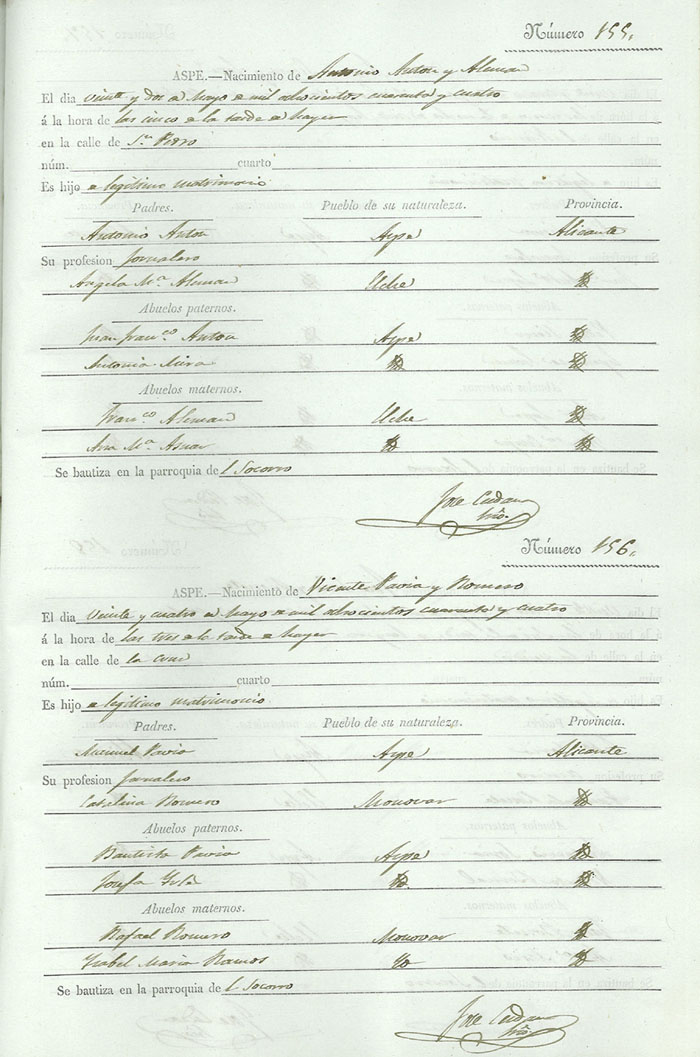 Número 155.
ASPE.—Nacimiento de Antonio Anton y Aleman
El dia veinte y dos de Mayo de mil ochocientos cuarenta y cuatro
á la hora de las cinco de la tarde de hayer
en la calle de Sn. Pedro
núm. cuarto
Es hijo de legitimo matrimonio
Padres. Pueblo de su naturaleza. Provincia.
Antonio Anton Aspe Alicante
Su profesion Jornalero
Angela Ma. Aleman Elche Yd
Abuelos paternos.
Juan Franco. Anton Aspe Yd
Antonia Mira Yd Yd
Abuelos maternos.
Franco. Aleman Elche Yd
Ana Ma. Asnar Yd Yd
Se bautiza en la parroquia de l Socorro
Jose
Srio.
Número 156.
ASPE.—Nacimiento de Vicente Pavia y Romero
El dia veinte y cuatro de Mayo de mil ochocientos cuarenta y cuatro
á la hora de las tres de la tarde de hayer
en la calle de la Cruz
núm. cuarto
Es hijo de legitimo matrimonio
Padres. Pueblo de su naturaleza. Provincia.
Manuel Pavia Aspe Alicante
Su profesion Jornalero
Catalina Romero Monovar Yd
Abuelos paternos.
Bautista Pavia Aspe Yd
Josefa Yd Yd
Abuelos maternos.
Rafael Romero Monovar Yd
Ysabel Maria Ramos Yd Yd
Se bautiza en la parroquia de l Socorro
Jose
Srio.